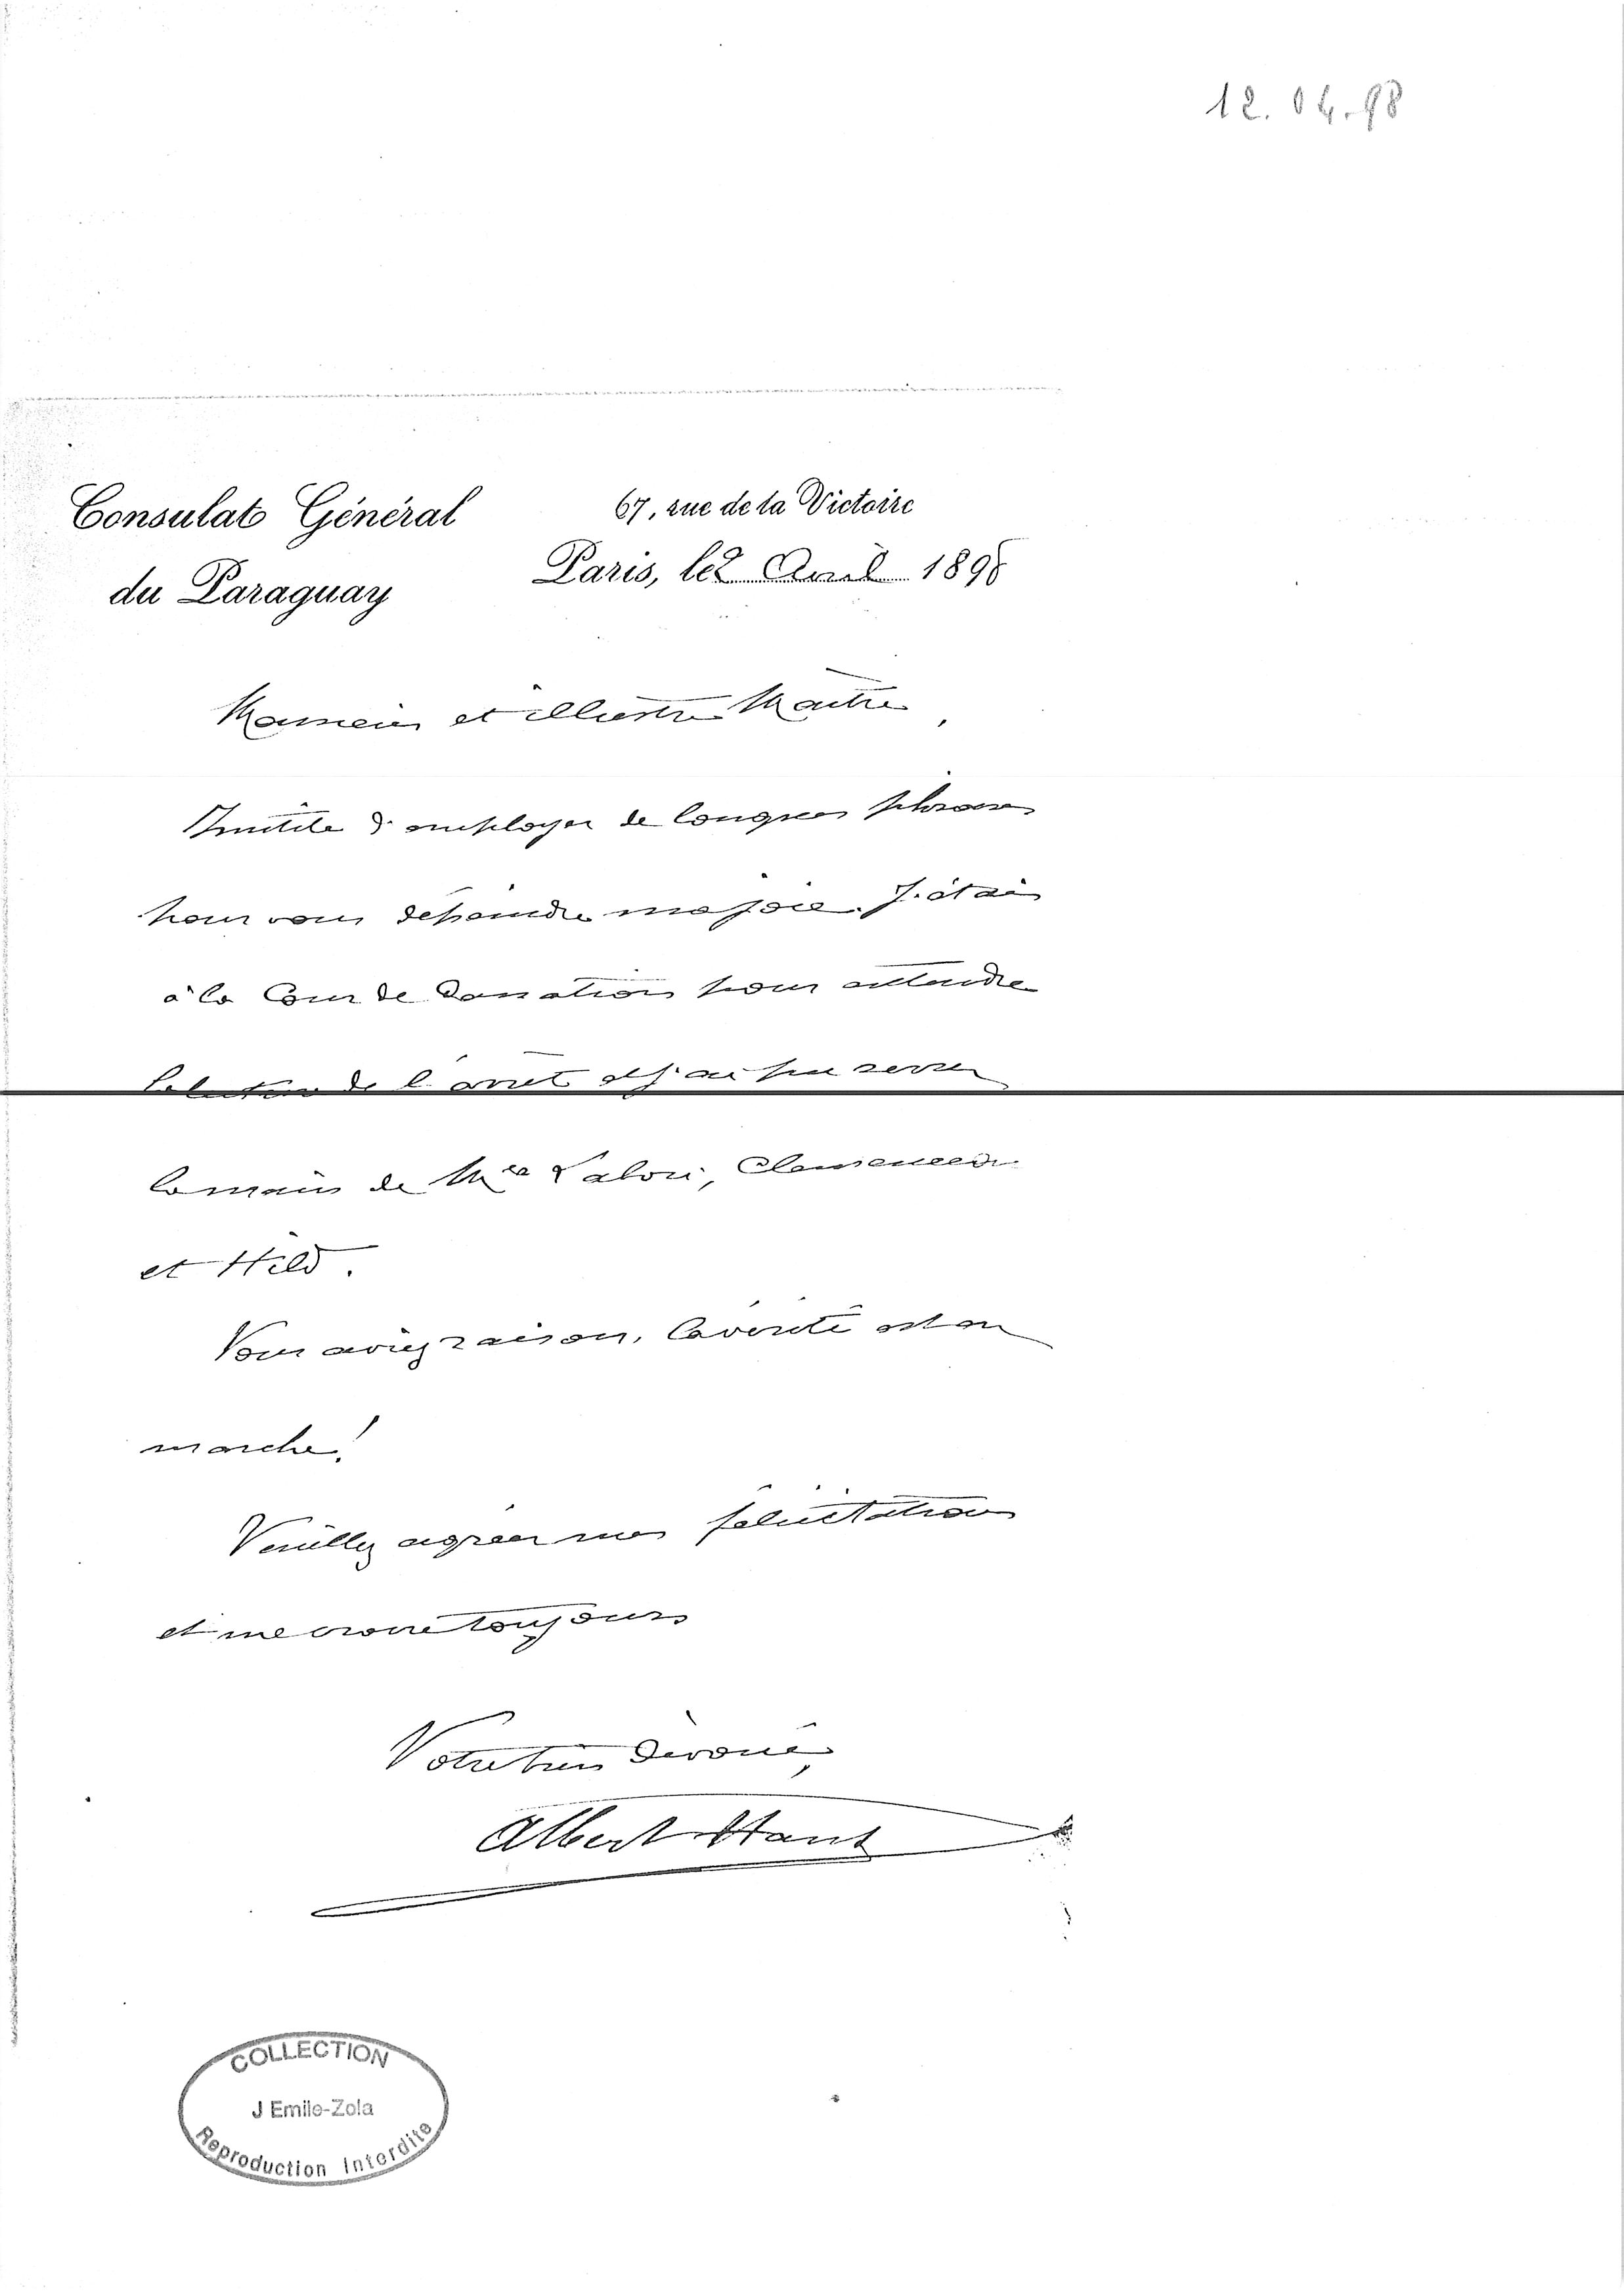 12.04.98
Consulat Général
du Paraguay
67, rue de la Victoire
Paris, le 2 Avril 1898
Monsieur et illustre Maître,
Inutile d'employer de longues phrases
pour vous dépeindre ma joie. J'étais
à la Cour de Cassation pour entendre
la lecture de l'arrêt et j'ai pu serrer
la main de Mes Labori, Clemenceau
et Hild.
Vous aviez raison, la vérité est en
marche!
Veuillez agréer mes félicitations
et me croire toujours
Votre bien dévoué,
Albert Hans
COLLECTION
J Emile-Zola
Reproduction Interdite